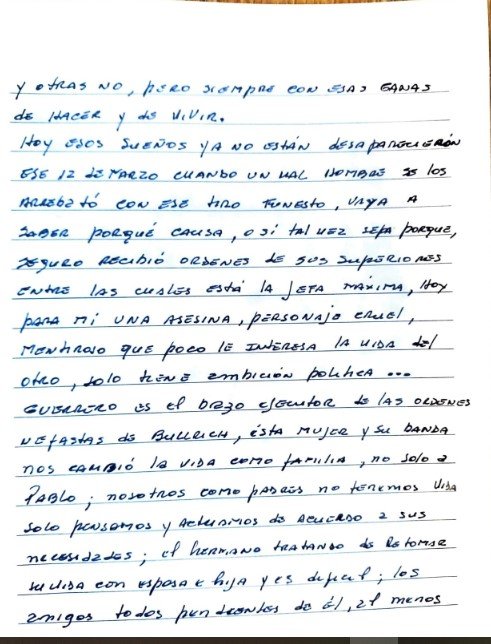 y otras no, pero siempre con esas ganas
de hacer y de vivir.
Hoy esos sueños ya no están desaparecierón
ese 12 de marzo cuando un mal hombre se los
arrebató con ese tiro funesto, vaya a
saber porqué causa, o sí tal vez sepa porque,
seguro recibió ordenes de sus superiores
entre las cuales está la jefa maxima, Hoy
para mi una asesina, personaje cruel,
mentiroso que poco le interesa la vida del
otro, solo tiene ambición politica ...
Guerrero es el brazo ejecutor de las ordenes
nefastas de Bullrich, ésta mujer y su banda
nos cambió la vida como familia, no solo a
Pablo; nosotros como padres no tenemos vida
solo pensamos y actuamos de acuerdo a sus
necesidades; el hermano tratando de retomar
su vida con esposa e hija y es dificil; los
amigos todos pendientes de él, al menos